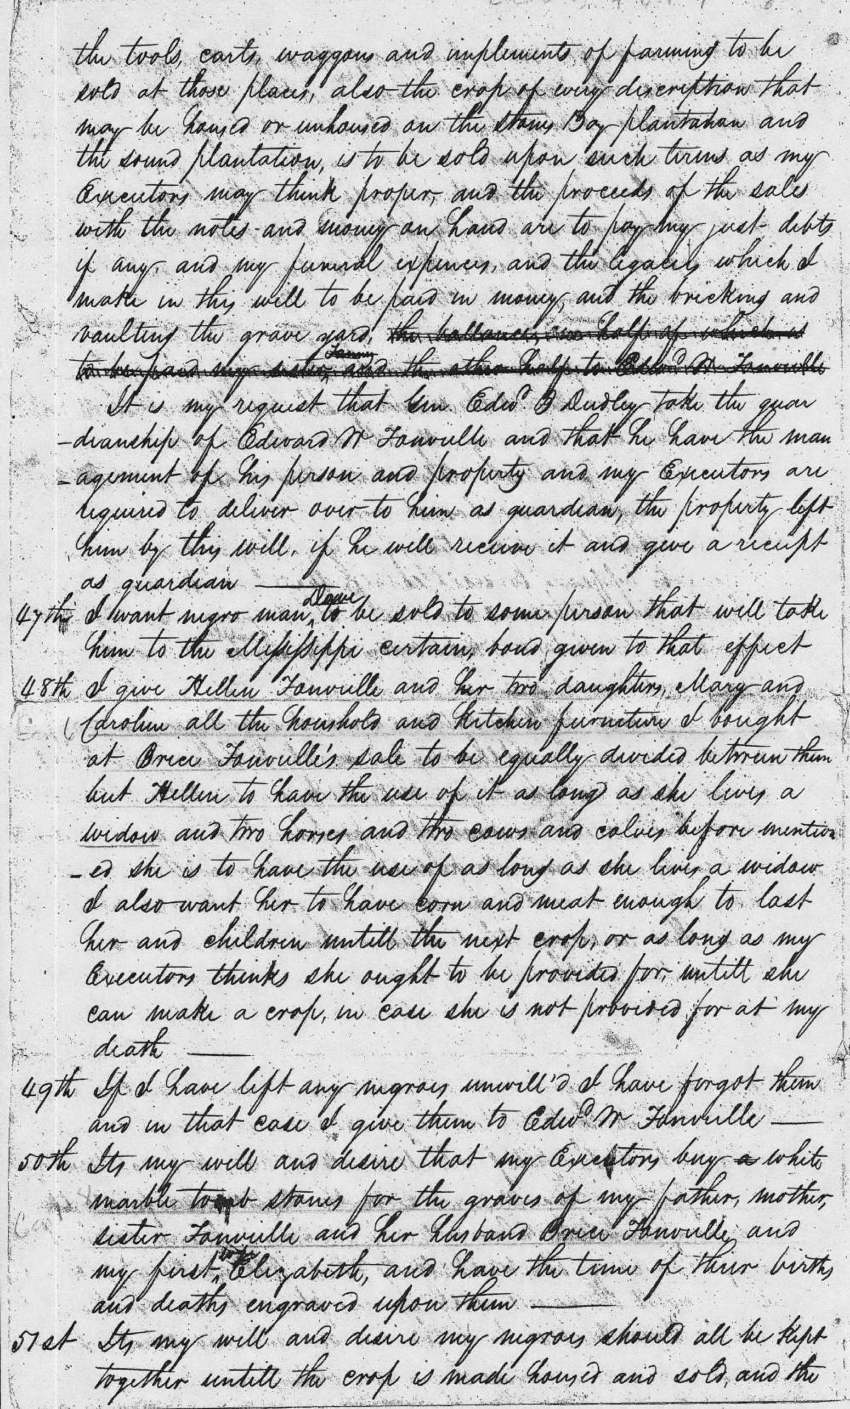 the tools, carts, waggons and implements of farming to be
sold at those places, also the crop of every discription that
may be housed or unhoused on the Stones Bay plantation and
the sound plantation, is to be sold upon such terms as my
Executors may think proper, and the proceeds of the sales
with the notes and money on hand are to pay my just debts
if any, and my funeral expences, and the legacies which I
make in this will to be paid in money, and the bricking and
vaulting the grave yard, the ballance, one half of which is
to be paid my sister Fanny, and the other half to Edwd W Fonville
It is my request that Gen Edwd B Dudley take the guar
-dianship of Edward W Fonville and that he have the man
-agement of his person and property and my Executors are
required to deliver over to him as guardian, the property left
him by this will, if he will recieve it and give a receipt
as guardian
47th I want negro man Dave to be sold to some person that will take
him to the Missippi certain, bond given to that effect
48th I give Hellen Fonville and her two daughters, Mary and
Caroline all the houshold and kitchen furniture I bought
at Brice Fonville's sale to be equally divided between them
but Hellen to have the use of it as long as she lives a
widow and two horses and two cows and calves before mention
-ed she is to have the use of as long as she lives a widow
I also want her to have corn and meat enough to last
her and children untill the next crop, or as long as my
Executors thinks she ought to be provided for, untill she
can make a crop, in case she is not provided for at my
death
49th If I have left any negroes unwill'd I have forgot them
and in that case I give them to Edwd W Fonville
50th Its my will and desire that my Executors buy a white
marble tomb stones for the graves of my father, mother,
sister Fonville and her husband Brice Fonville, and
my first wife Elizabeth, and have the time of their births
and deaths engraved upon them
51st Its my will and desire my negroes should all be kept
together untill the crop is made housed and sold, and the